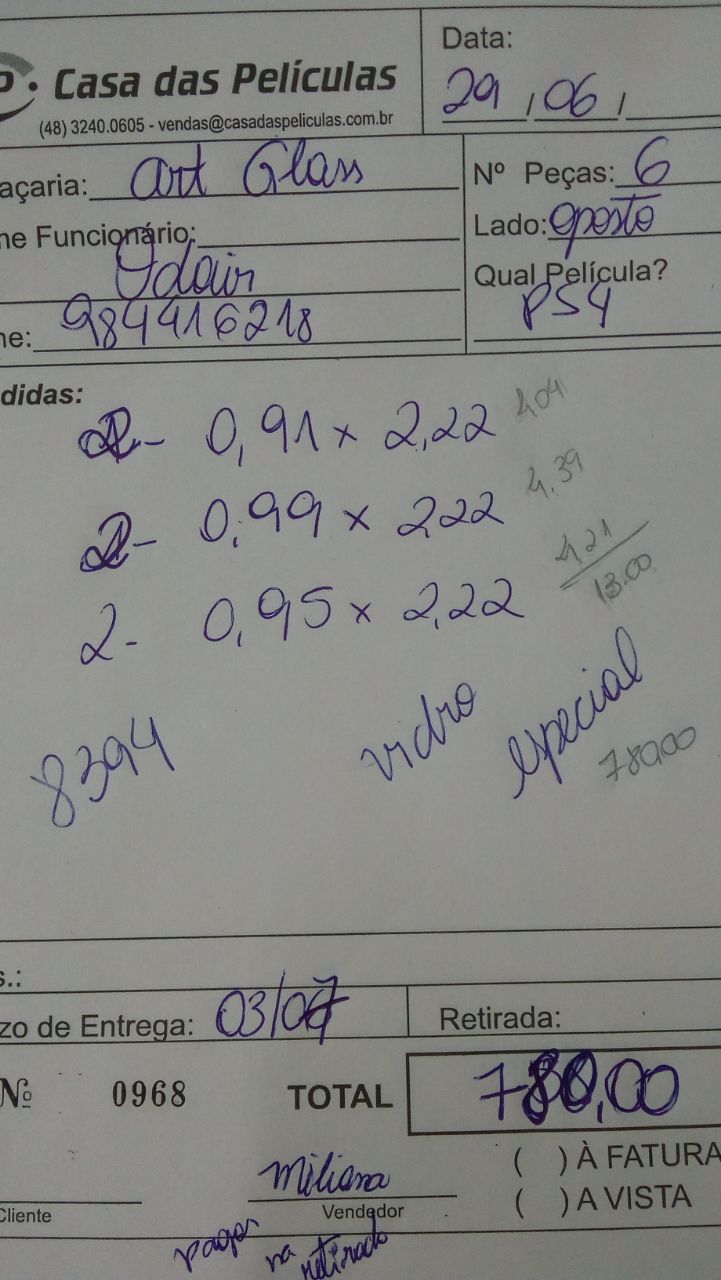 Casa das Películas
(48) 3240.0605 - vendas@casadaspeliculas.com.br
Data:
29 / 06 /
açaria: Art Glass
Nº Peças: 6
me Funcionário:
Odair
Lado: oposto
Qual Película?
PS4
ne: 984416218
didas:
2- 0,91 x 2,22 4,04
2- 0,99 x 2,22 4,39
2- 0,95 x 2,22 4,21
13.00
8394
vidro especial
780,00
s.:
zo de Entrega: 03/07
Retirada:
Nº 0968
TOTAL 780,00
( ) À FATURA
( ) A VISTA
Miliena
Cliente
Vendedor
pagar na retirada